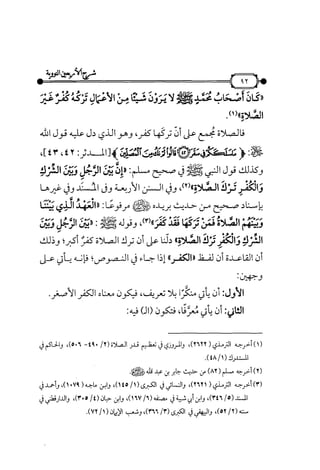 شرح الأربعين النووية
٩٢
«كَانَ أَصْحَابُ مُحَمَّدٍ ﷺ لَا يَرَوْنَ شَيْئًا مِنَ الأَعْمَالِ تَرْكُهُ كُفْرٌ غَيْرَ
الصَّلَاةِ»(١).
فالصلاة مُجمع على أنَّ تركَها كفر، وهو الذي دل عليه قول الله
: ﴿مَا سَلَكَكُمْ فِي سَقَرَ ٤٢ قَالُوا لَمْ نَكُ مِنَ الْمُصَلِّينَ﴾ [المدثر: ٤٢، ٤٣]،
وكذلك قول النبي ﷺ في صحيح مسلم: «إِنَّ بَيْنَ الرَّجُلِ وَبَيْنَ الشِّرْكِ
وَالْكُفْرِ تَرْكَ الصَّلَاةِ»(٢)، وفي السنن الأربعة وفي المسند وفي غيرها
بإسناد صحيح من حديث بريدة مرفوعًا: «الْعَهْدُ الَّذِي بَيْنَنَا
وَبَيْنَهُمُ الصَّلَاةُ فَمَنْ تَرَكَهَا فَقَدْ كَفَرَ»(٣)، وقوله : «بَيْنَ الرَّجُلِ وَبَيْنَ
الشِّرْكِ وَالْكُفْرِ تَرْكُ الصَّلَاةِ» دلَّنا على أن ترك الصلاة كفرٌ أكبر؛ وذلك
أن القاعدة أن لفظ «الكفر» إذا جاء في النصوص؛ فإنه يأتي على
وجهين:
الأول: أن يأتي منكَّرًا بلا تعريف، فيكون معناه الكفر الأصغر.
الثاني: أن يأتي مُعرَّفًا، فتكون (ال) فيه:
(١) أخرجه الترمذي (٢٦٢٢)، والمروزي في تعظيم قدر الصلاة (٢/ ٤٩٠- ٥٠٦)، والحاكم في
المستدرك (١/ ٤٨).
(٢) أخرجه مسلم (٨٢) من حديث جابر بن عبد الله .
(٣) أخرجه الترمذي (٢٦٢١)، والنسائي في الكبرى (١/ ١٤٥)، وابن ماجه (١٠٧٩)، وأحمد في
المسند (٥/ ٣٤٦)، وابن أبي شيبة في مصنفه (٦/ ١٦٧)، وابن حبان (٤/ ٣٠٥)، والدارقطني في
سننه (٢/ ٥٢)، والبيهقي في الكبرى (٣/ ٣٦٦)، وشعب الإيمان (١/ ٧٢).